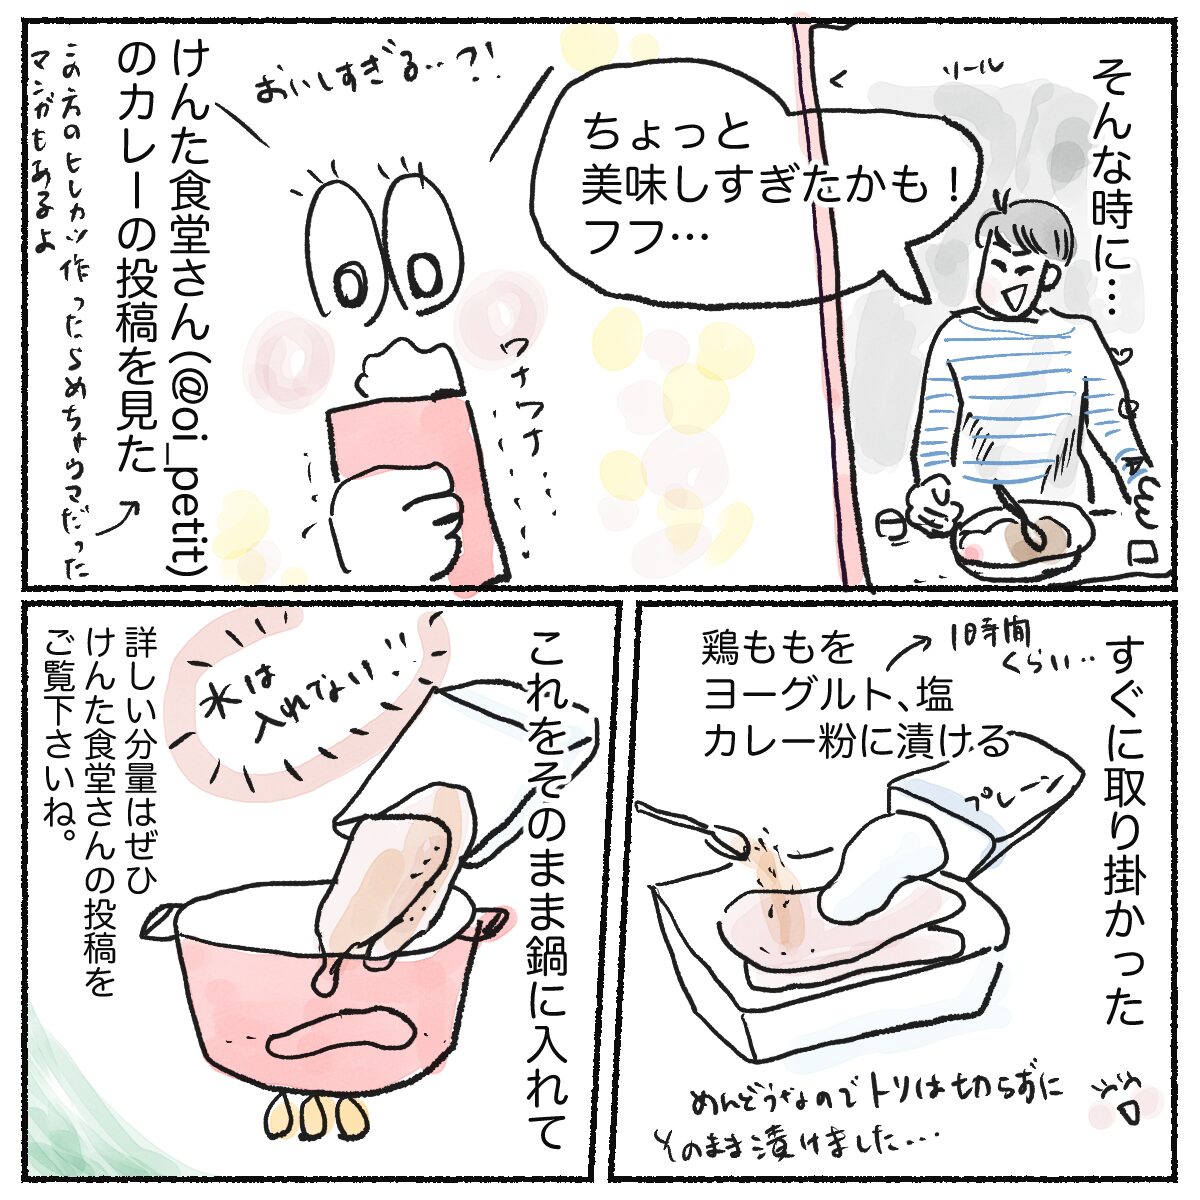 そんな時に…
リール
ちょっと
美味しすぎたかも！
フフ…
おいしすぎる…?!
ワナワナ
けんた食堂さん(@oi_petit)
のカレーの投稿を見た
この方のヒレカツ作ったらめちゃウマだった
マンガもあるよ
すぐに取り掛かった
鶏ももを
ヨーグルト、塩
カレー粉に漬ける
1時間
くらい..
プレーン
めんどうなのでトリは切らずに
そのまま漬けました…
これをそのまま鍋に入れて
水は
入れてない!!
詳しい分量はぜひ
けんた食堂さんの投稿を
ご覧下さいね。